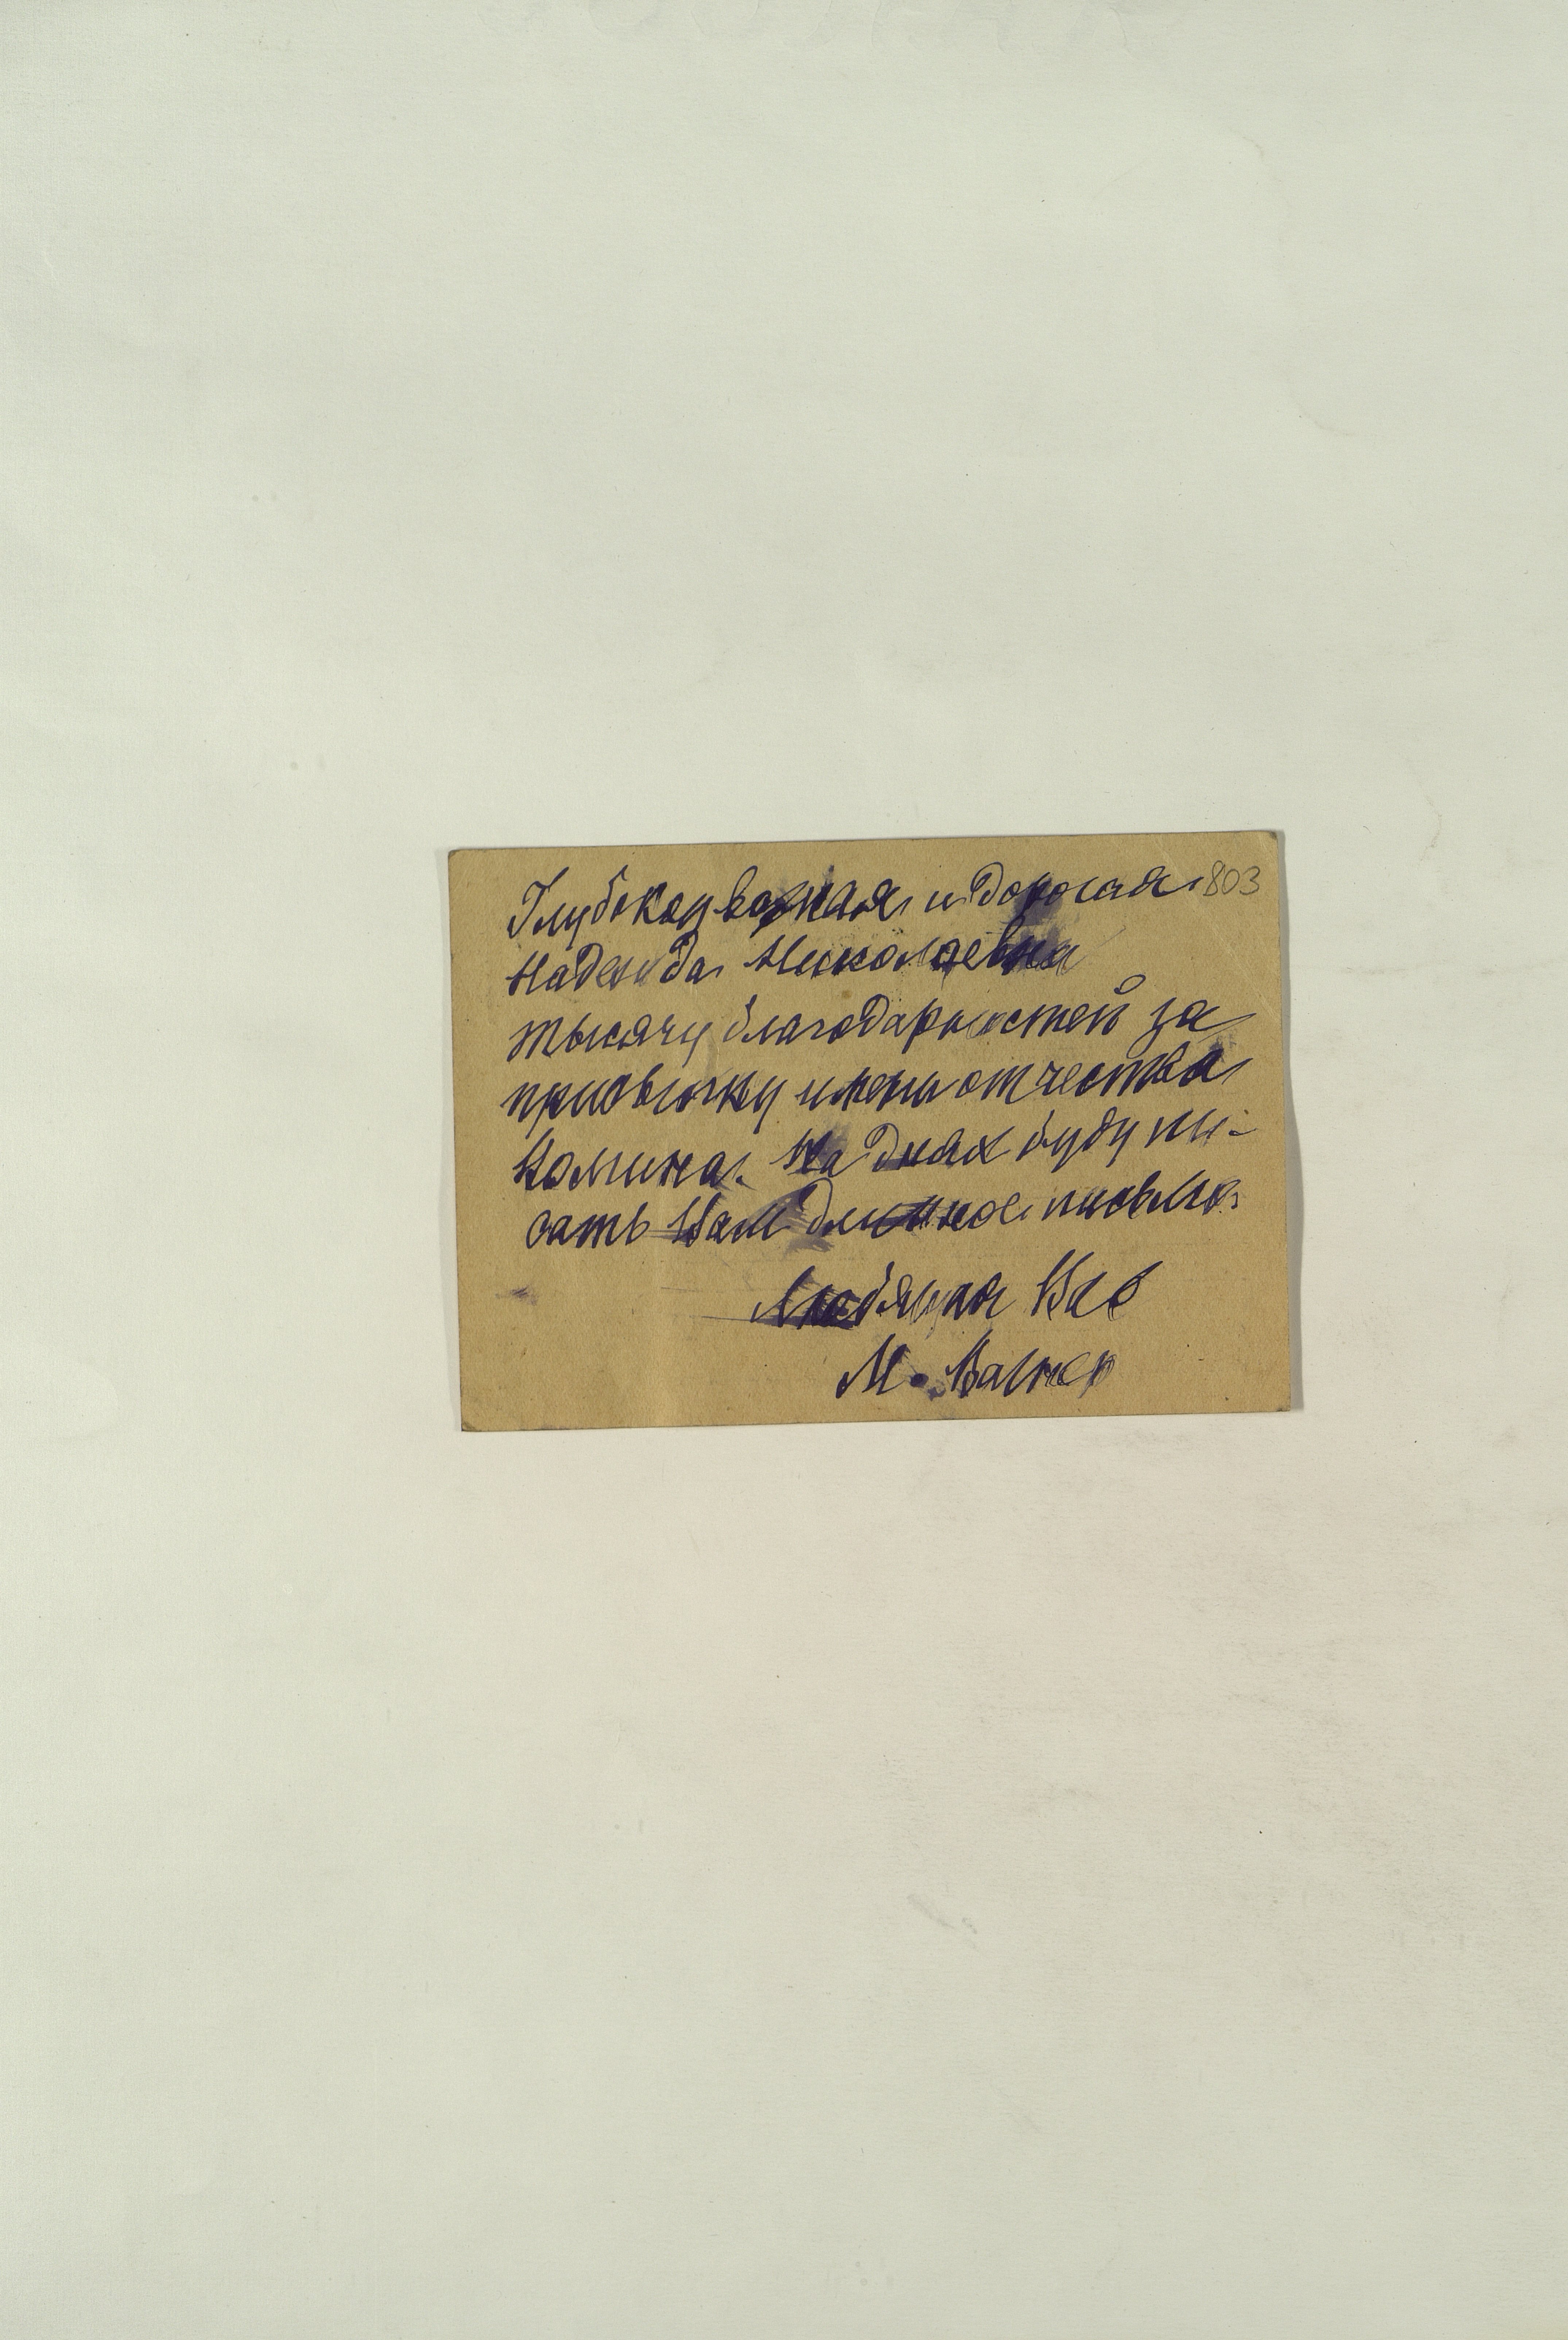 Глубокоуважаемая и дорогая 803
Надежда Николаевна
тысячу благодарностей за
присылку имени отчества
Калинина. На днях буду пи-
сать Вам длинное письмо.
Любящая Вас
М. Вагнер